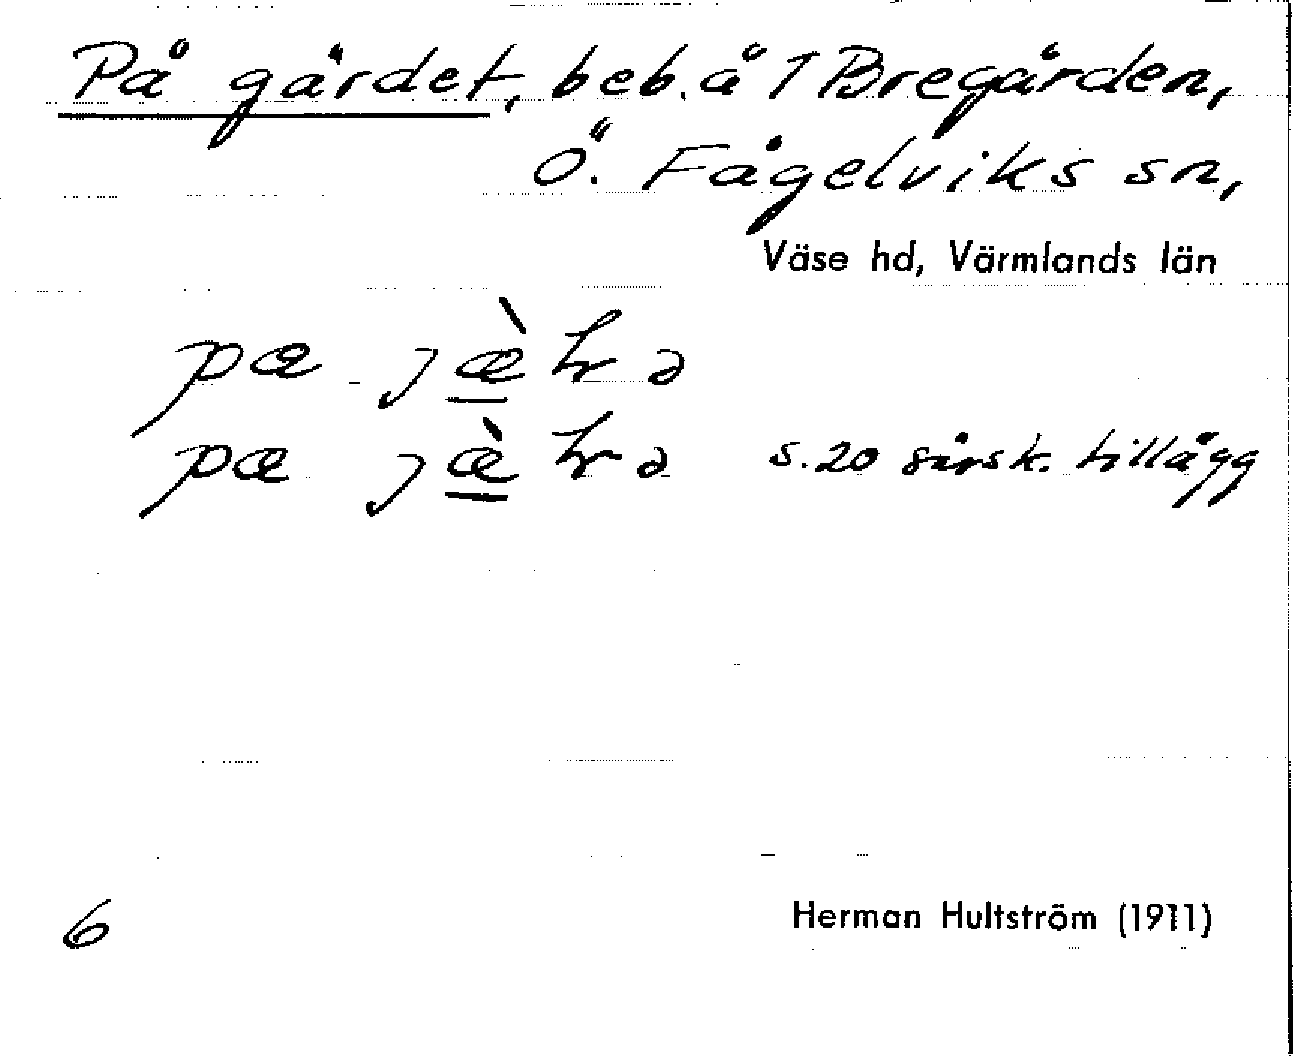 På gärdet, beb. å 1 Bregården,
Ö. Fågelviks sn,
Väse hd, Värmlands län
pæ
pæ
s. 20 särsk. tillägg
6
Herman Hultström (1911)